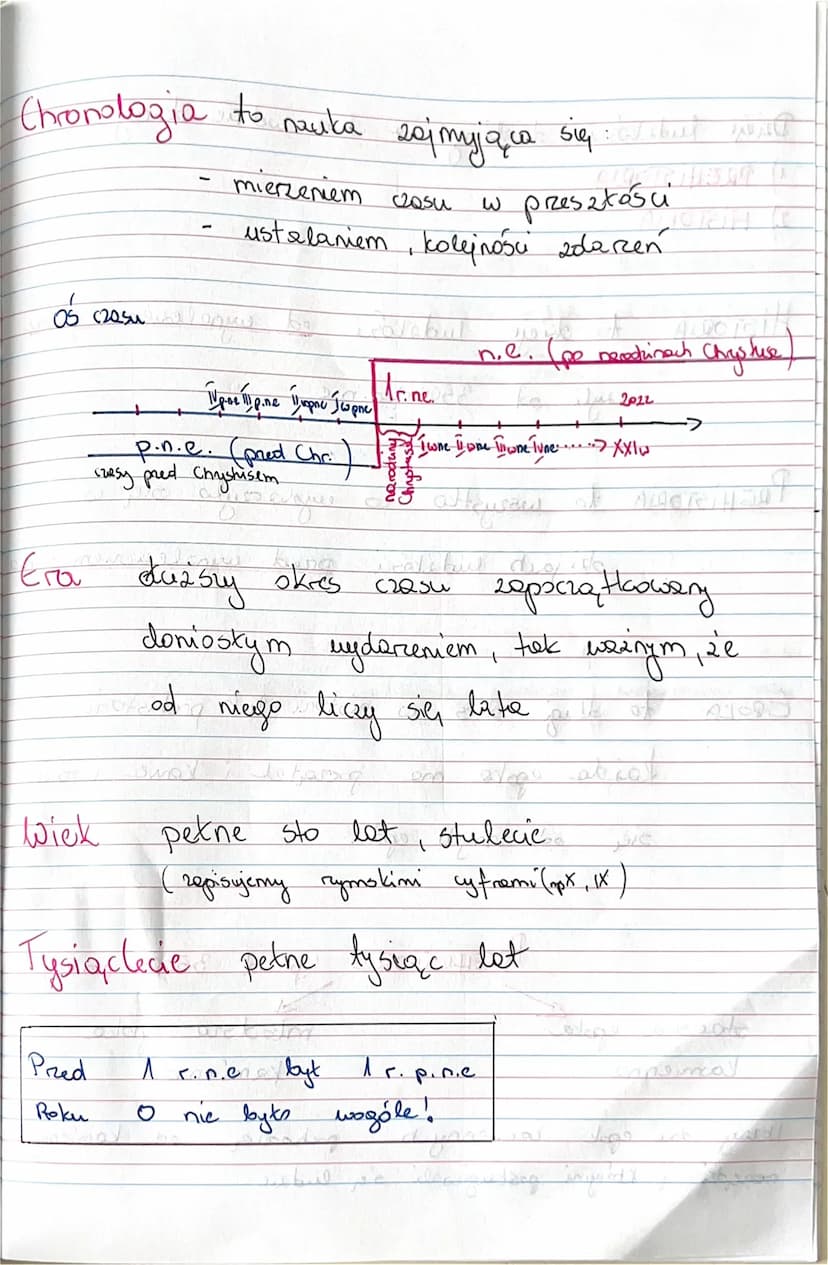 Chronologia to nauka zajmująca się:
- mierzeniem czasu w przeszłości
- ustalaniem, kolejności zdarzeń
Oś czasu
n.e. (po narodzinach Chrystusa)
IV pne III p.ne II w pne I w pne
1 r. ne.
2022
p.n.e. (pred Chr.)
czasy pred Chrystusem
narodziny Chrystusa
I w ne II w ne III w ne IV ne ·····> XXI w
Era dłuższy okres czasu zapoczątkowany
doniosłym wydarzeniem, tak ważnym, że
od niego liczy się lata
Wiek pełne sto lat, stulecie
(zapisujemy rzymskimi cyframi (np X, IX)
Tysiąclecie pełne tysiąc lat
Pred 1 r. n.e był 1 r. p.n.e
Roku 0 nie było wogóle!